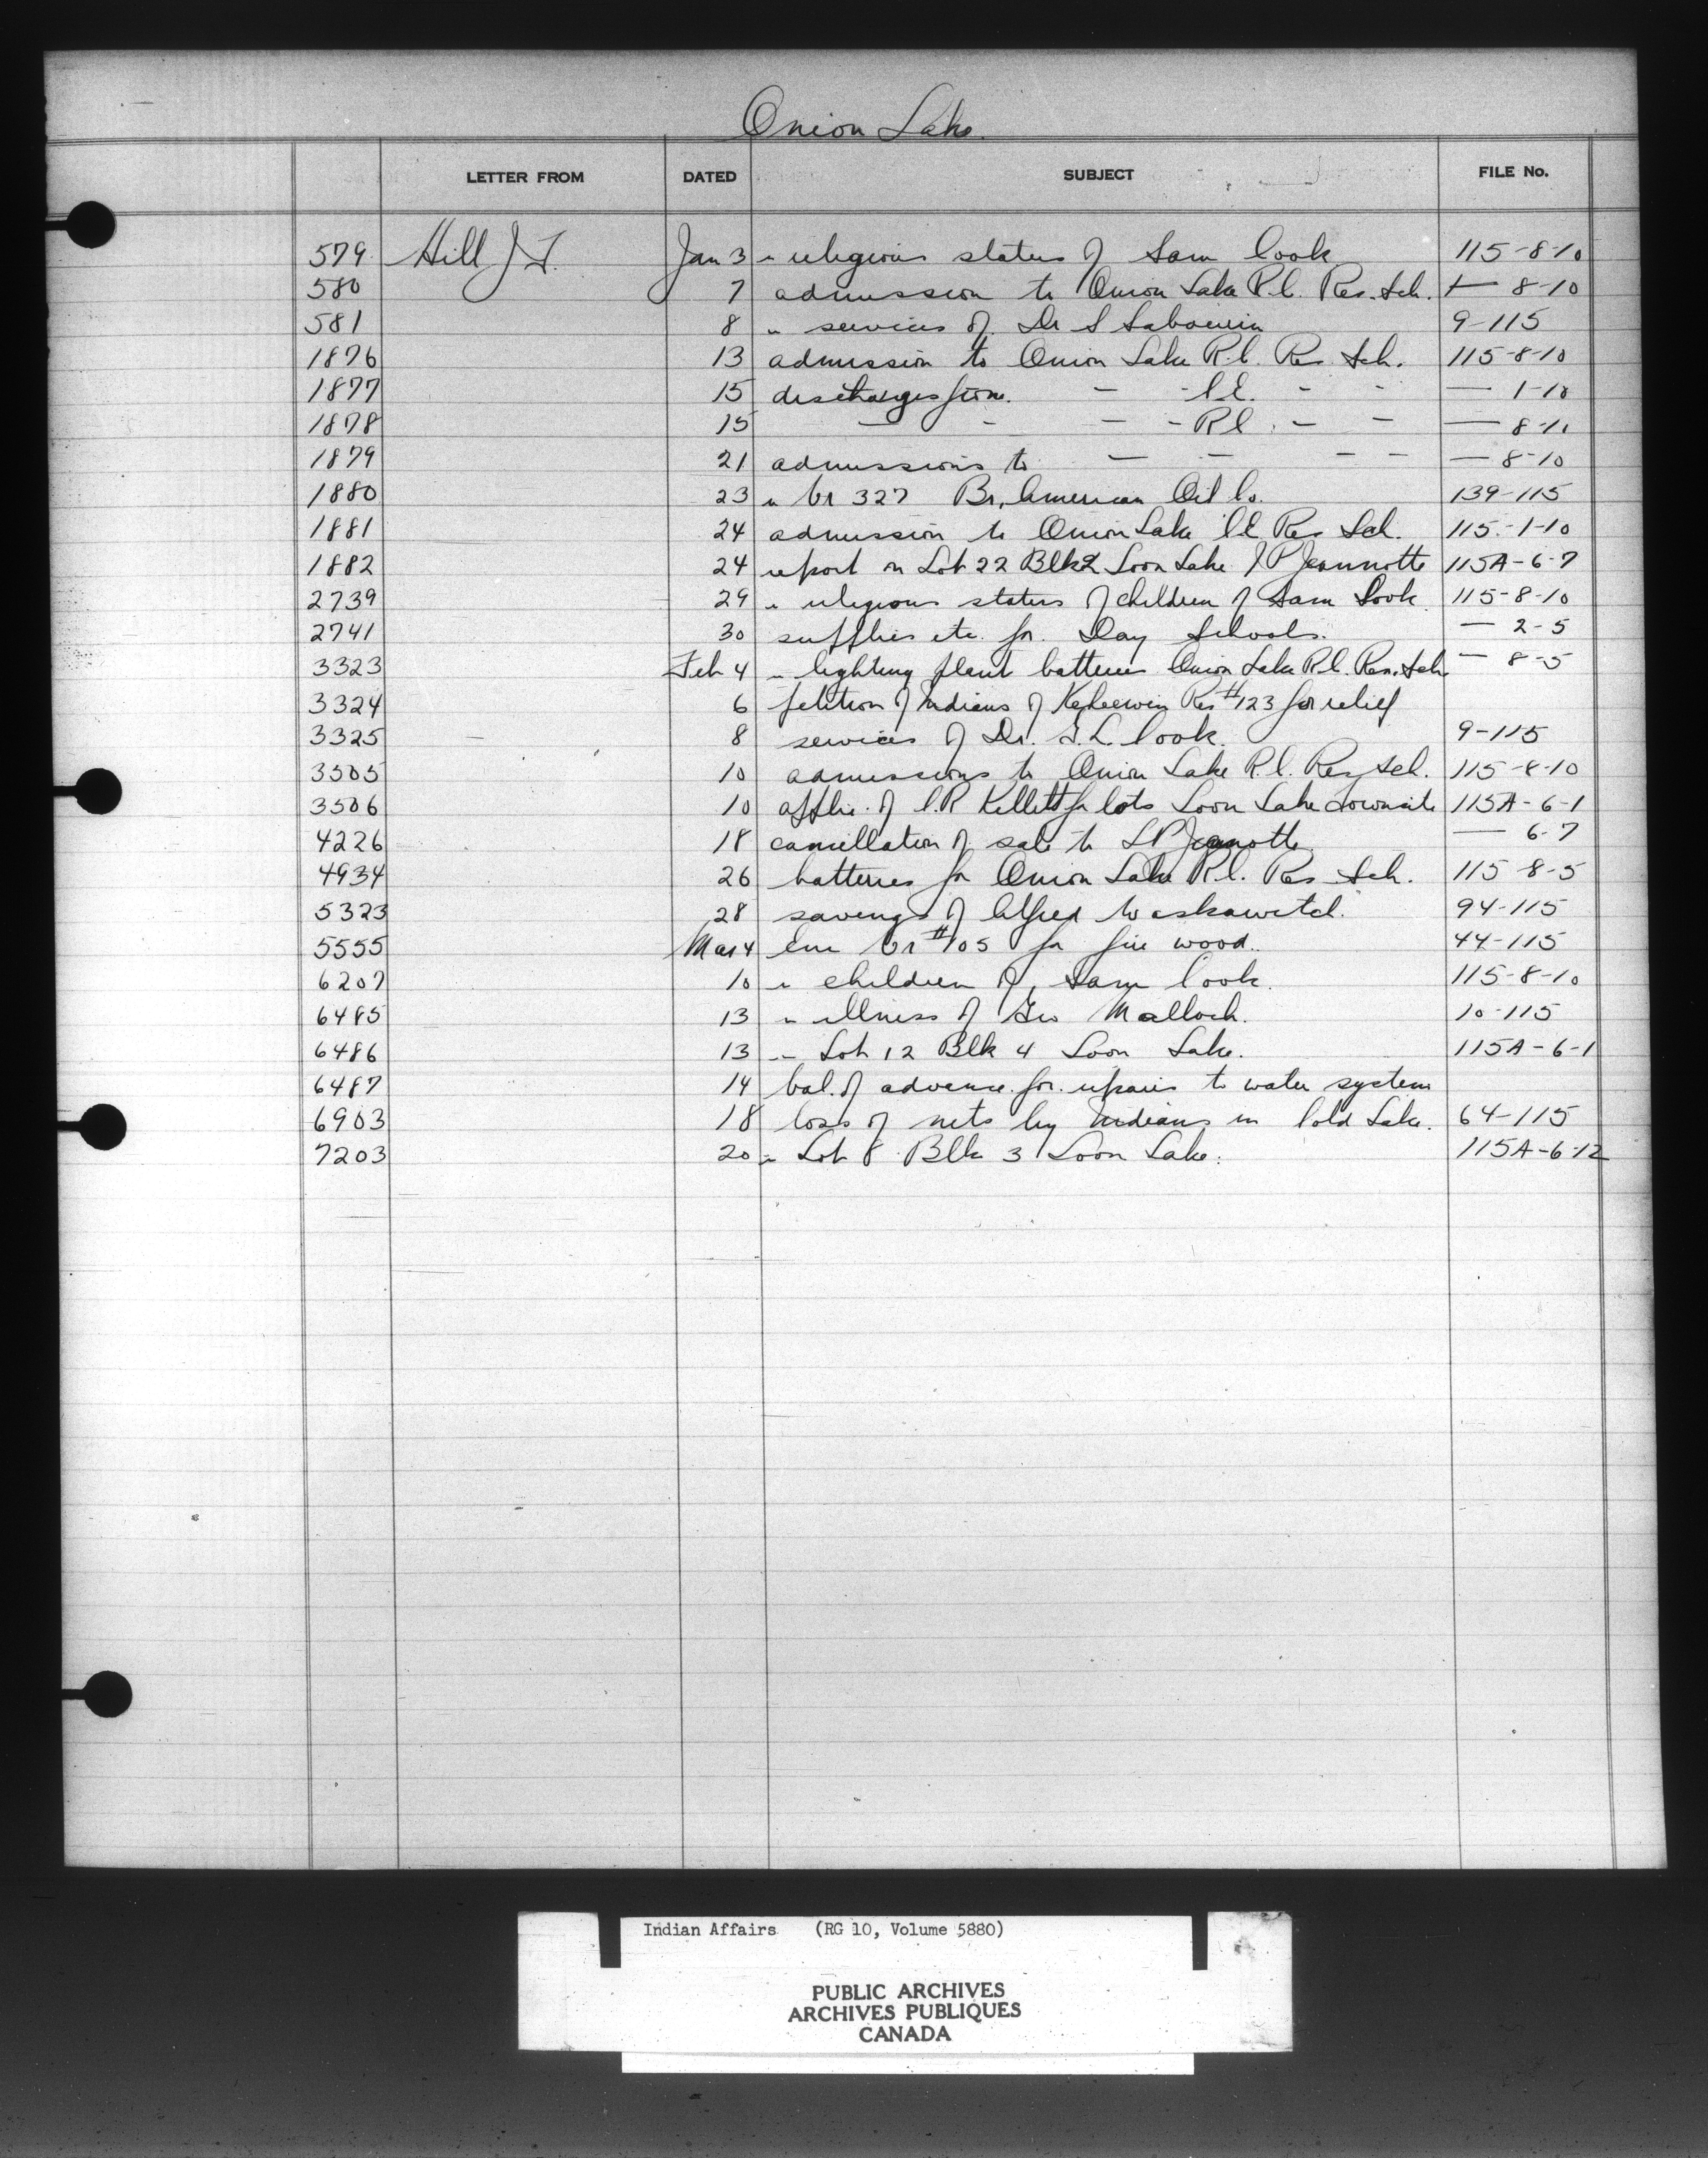 Onion Lake.
LETTER FROM DATED SUBJECT FILE No.
579 Hill J F. Jan 3 " religious status of Sam Cook 115-8-10
580 7 admission to Onion Lake R.C. Res. Sch. — 8-10
581 8 " services of Dr S Sabourin 9-115
1876 13 admission to Onion Lake R.C. Res Sch. 115-8-10
1877 15 discharges from. — - C.E. - - — 1-10
1878 15 — - — - R C. — — — 8-10
1879 21 admissions to — — — — — 8-10
1880 23 " Vr 327 Br. American Oil Co. 139-115
1881 24 admission to Onion Lake C.E Res Sch. 115-1-10
1882 24 report on Lot 22 Blk 2 Loon Lake J P Jeannotte 115A-6-7
2739 29 " religious status of children of Sam Cook 115-8-10
2741 30 supplies etc. for Day Schools. — 2-5
3323 Feb 4 " lighting plant batteries Onion Lake R.C. Res. Sch. — 8-5
3324 6 petition of Indians of Keheewin Res #123 for relief
3325 8 services of Dr. G.L. Cook. 9-115
3505 10 admissions to Onion Lake R.C. Res Sch. 115-8-10
3506 10 applic. of C.R Kellett for lots Loon Lake Townsite 115A-6-1
4226 18 cancellation of sale to L P Jeannotte — 6-7
4934 26 batteries for Onion Lake R.C. Res Sch. 115-8-5
5323 28 savings of Alfred Waskawitch. 94-115
5555 Mar 4 Vr #105 for fire wood. 44-115
6207 10 " children of Sam Cook. 115-8-10
6485 13 " illness of Geo Malloch. 10-115
6486 13 " Lot 12 Blk 4 Loon Lake. 115A-6-1
6487 14 bal. of advance for repairs to water system
6903 18 loss of nets by Indians in Cold Lake. 64-115
7203 20 " Lot 8 Blk 3 Loon Lake. 115A-6-12
Indian Affairs (RG 10, Volume 5880)
PUBLIC ARCHIVES
ARCHIVES PUBLIQUES
CANADA